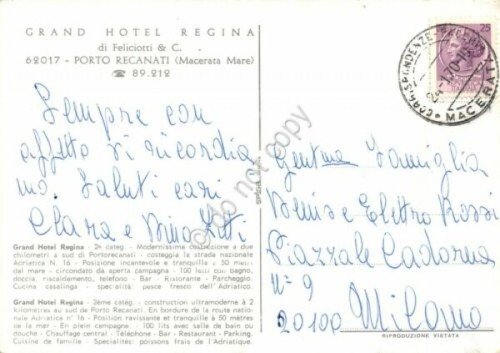 GRAND HOTEL REGINA
di Feliciotti & C.
62017 - PORTO RECANATI (Macerata Mare)
☎ 89.212
Sempre con
affetto vi ricordia
mo. Saluti cari
Clara e Dino
Grand Hotel Regina - 2a categ. - Modernissima costruzione a due
chilometri a sud di Portorecanati - costeggia la strada nazionale
Adriatica N. 16 - Posizione incantevole e tranquilla a 50 metri
del mare - circondato da aperta campagna - 100 letti con bagno,
doccia, riscaldamento, telefono - Bar - Ristorante - Parcheggio.
Cucina casalinga - specialità pesce fresco dell'Adriatico.
Grand Hotel Regina - 2ème categ. - construction ultramoderne à 2
kilomètres au sud de Porto Recanati. En bordure de la route natio-
nale Adriatica n° 16 - Position ravissante et tranquille à 50 mètres
de la mer - En plein campagne. - 100 lits avec salle de bain ou
douche - Chauffage central - Téléphone - Bar - Restaurant - Parking.
Cuisine de famille - Specialités: poissons frais de l'Adriatique.
25
CORRISPONDENZE
MACERATA
Gent.ma Famiglia
Denis e Elettro Rossi
Piazzale Cadorna
n° 9
20100 Milano
RIPRODUZIONE VIETATA
© do not copy